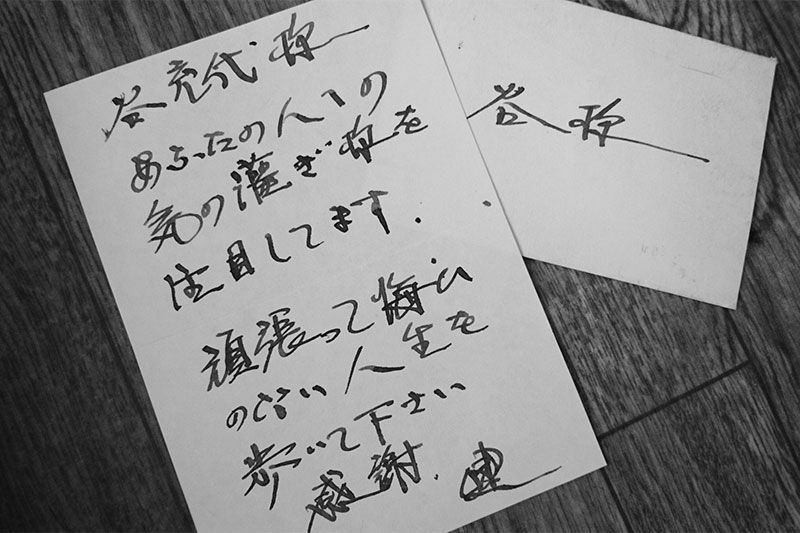 谷充代様
あなたの人への
気の灌ぎ様を
注目してます.
頑張って悔い
のない人生を
歩いて下さい
感謝.
谷様